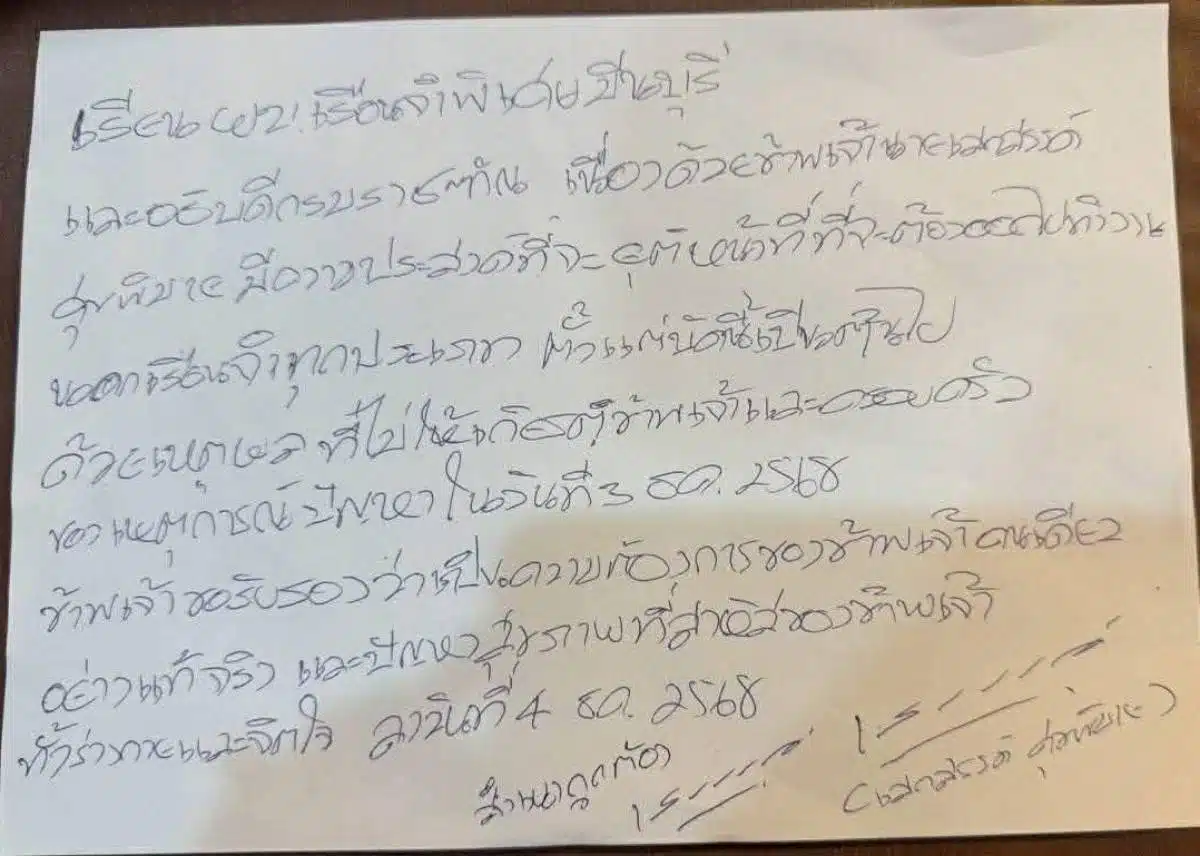 เรียน ผบ.เรือนจำพิเศษมีนบุรี
และอธิบดีกรมราชทัณ เนื่องด้วยข้าพเจ้านายเสกสรรค์
ศุขพิมาย มีความประสงค์ที่จะยุติหน้าที่ที่จะต้องออกไปทำงาน
นอกเรือนจำทุกประเภท ตั้งแต่บัดนี้เป็นต้นไป
ด้วยเหตุผล ที่ไม่ให้เกิดต่อข้าพเจ้าและครอบครัว
ของเหตุการณ์ปัญหา ในวันที่ 3 ธค. 2568
ข้าพเจ้าขอรับรองว่าเป็นความต้องการของข้าพเจ้าคนเดียว
อย่างแท้จริง และปัญหาสุขภาพที่ของข้าพเจ้า
ทั้งร่างกายและจิตใจ ลงวันที่ 4 ธค. 2568
สำเนาถูกต้อง
(เสกสรรค์ ศุขพิมาย)